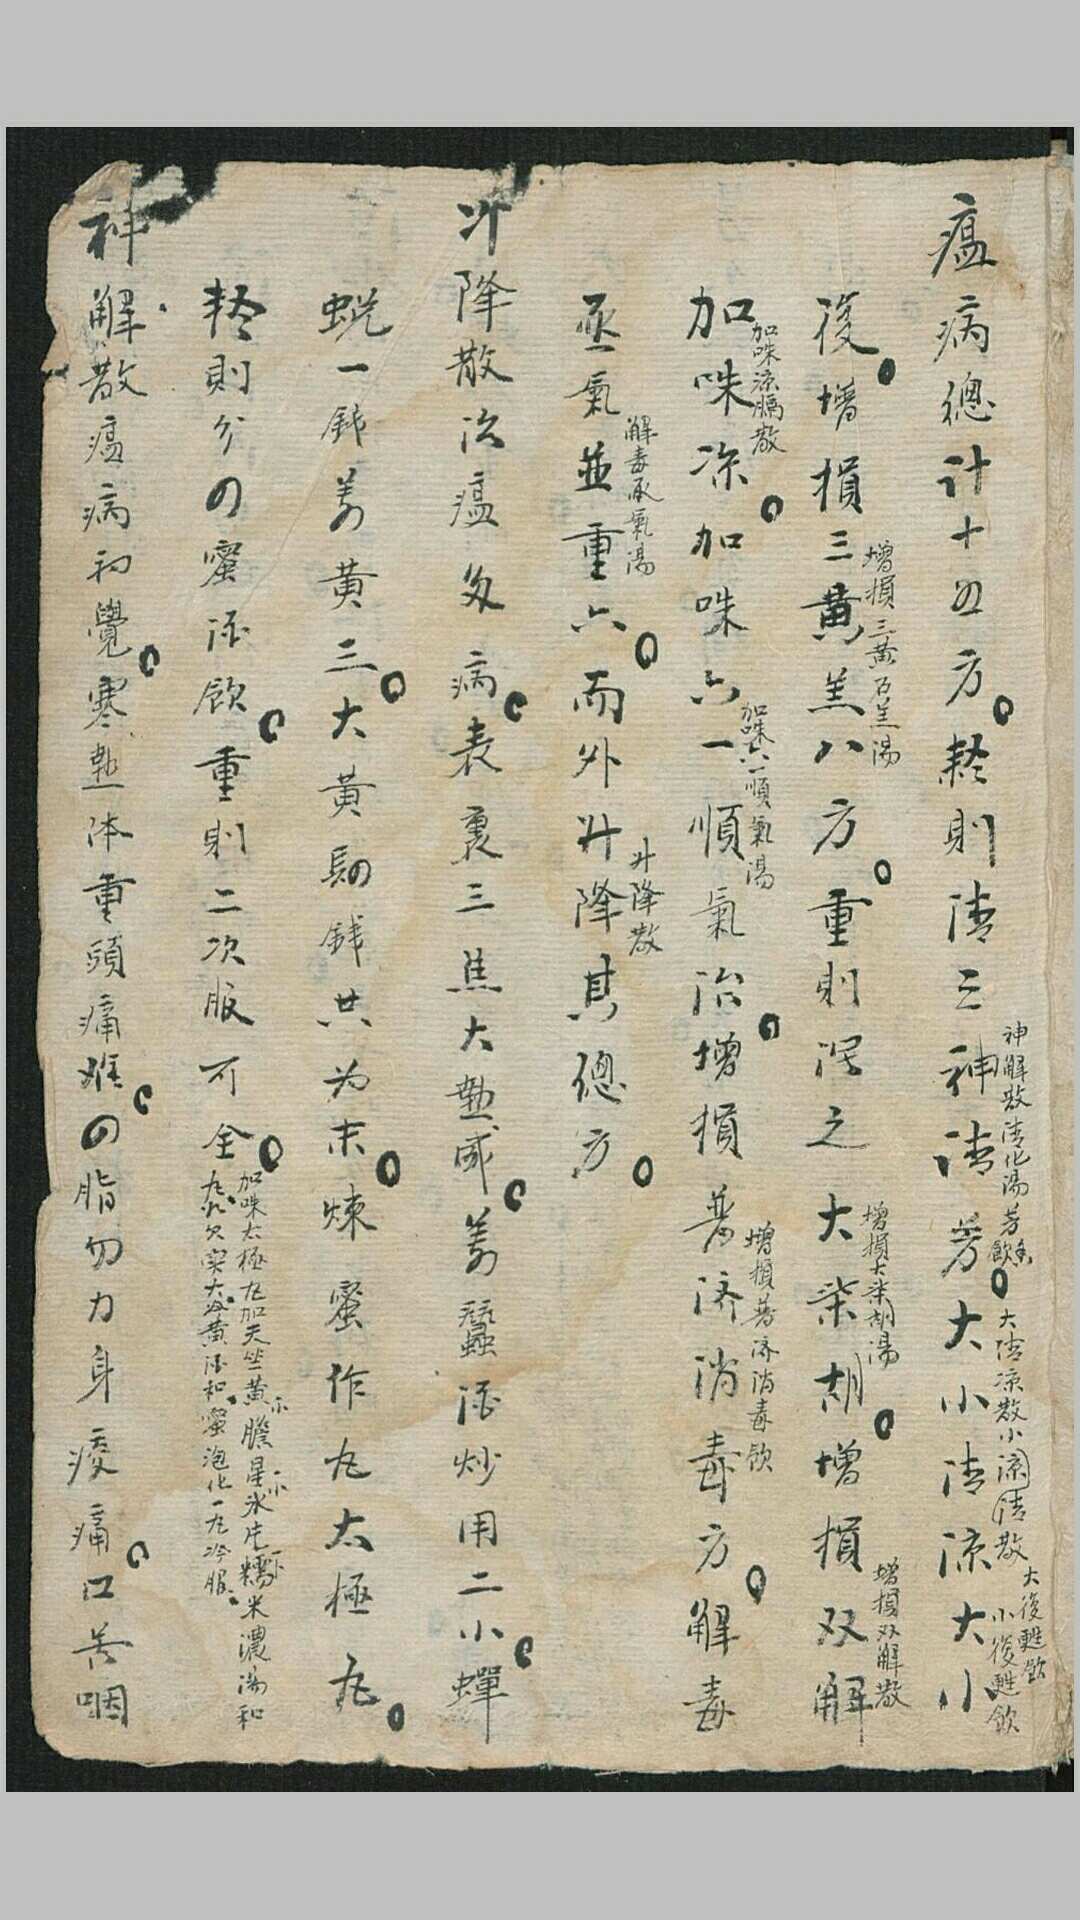 瘟病總計十四方轻則清之神清芳大小清涼大小
神解散清化湯芳香飲
大清涼散小涼清散
大復甦飲
小復甦飲
復增損三黃羔八方重則泻之大柴胡增損双解
增損三黃石羔湯
增損大柴胡湯
增損双解散
加味凉加味六一順氣治增損普济消毒方解毒
加味凉膈散
加味六一順氣湯
增損普济消毒飲
承氣並重六而外升降其總方
解毒承氣湯
升降散
升降散治瘟多病表裏三焦大熱盛姜蠶酒炒用二小蟬
蜕一錢姜黃三大黃四錢共为末煉蜜作丸太極丸
轻則分四蜜酒飲重則二次服可全
加味太極丸加天竺黃膽星氷片糯米濃湯和
蜜泡化一丸冷服
神解散瘟病初覺寒熱体重頭痛难四脂勿力身痠痛口苦咽